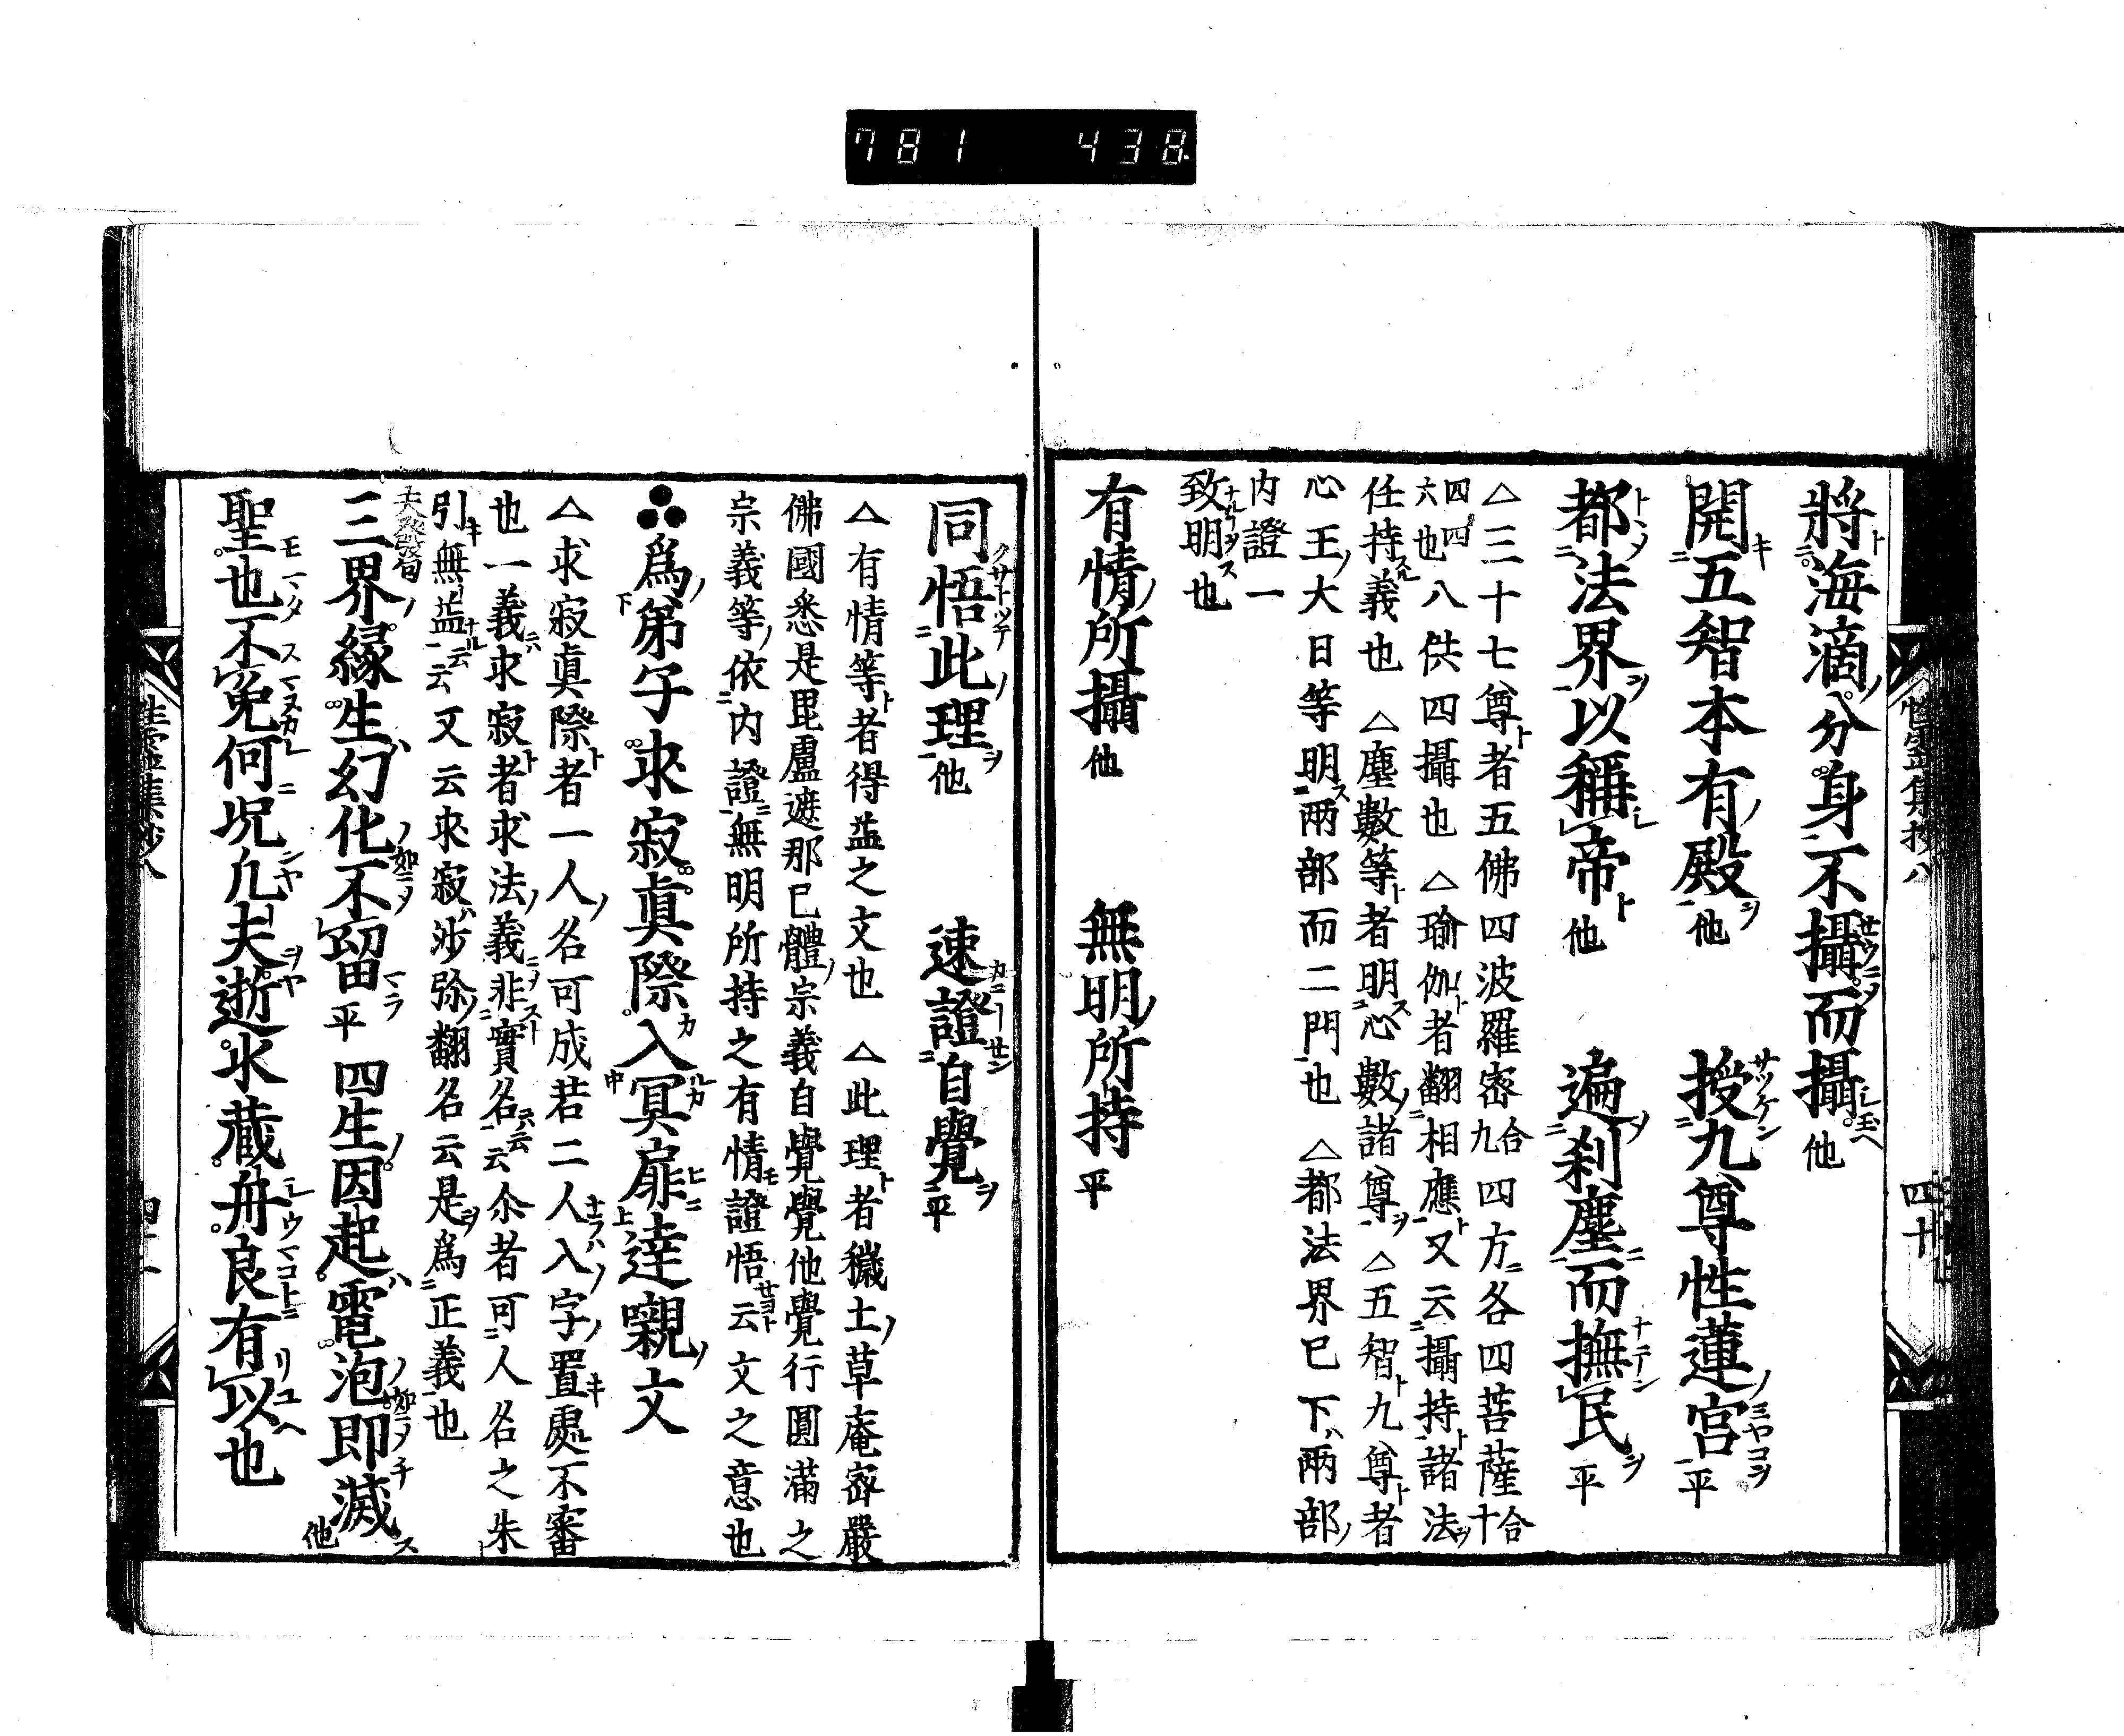 781 438
性霊集抄八 四十
將海滴分身不攝而攝他
開五智本有殿他 授九尊性蓮宮平
都法界以稱帝他 遍刹塵而撫民平
△三十七尊者五佛四波羅宻合九四方各四菩薩合十
六也四四八供四攝也△瑜伽者翻相應又云攝持諸法
任持義也△塵數等者明心數諸尊△五智九尊者
心王大日等明兩部而二門也△都法界已下兩部
内證一
致明也
有情所攝他 無明所持平
同悟此理他 速證自覺平
△有情等者得益之文也△此理者穢土草庵宻嚴
佛國悉是毘盧遮那已體宗義自覺覺他覺行圓滿之
宗義等依内證無明所持之有情證悟云文之意也
為弟子求寂眞際入冥扉達嚫文
△求寂眞際者一人名可成若二人入字置處不審
也一義求寂者求法義非實名云尒者可人名之朱
引無益云又云求寂沙弥翻名云是為正義也
夫發句
三界縁生幻化不留平 四生因起電泡即滅他
聖也不免何况凢夫逝水藏舟良有以也
性霊集抄八